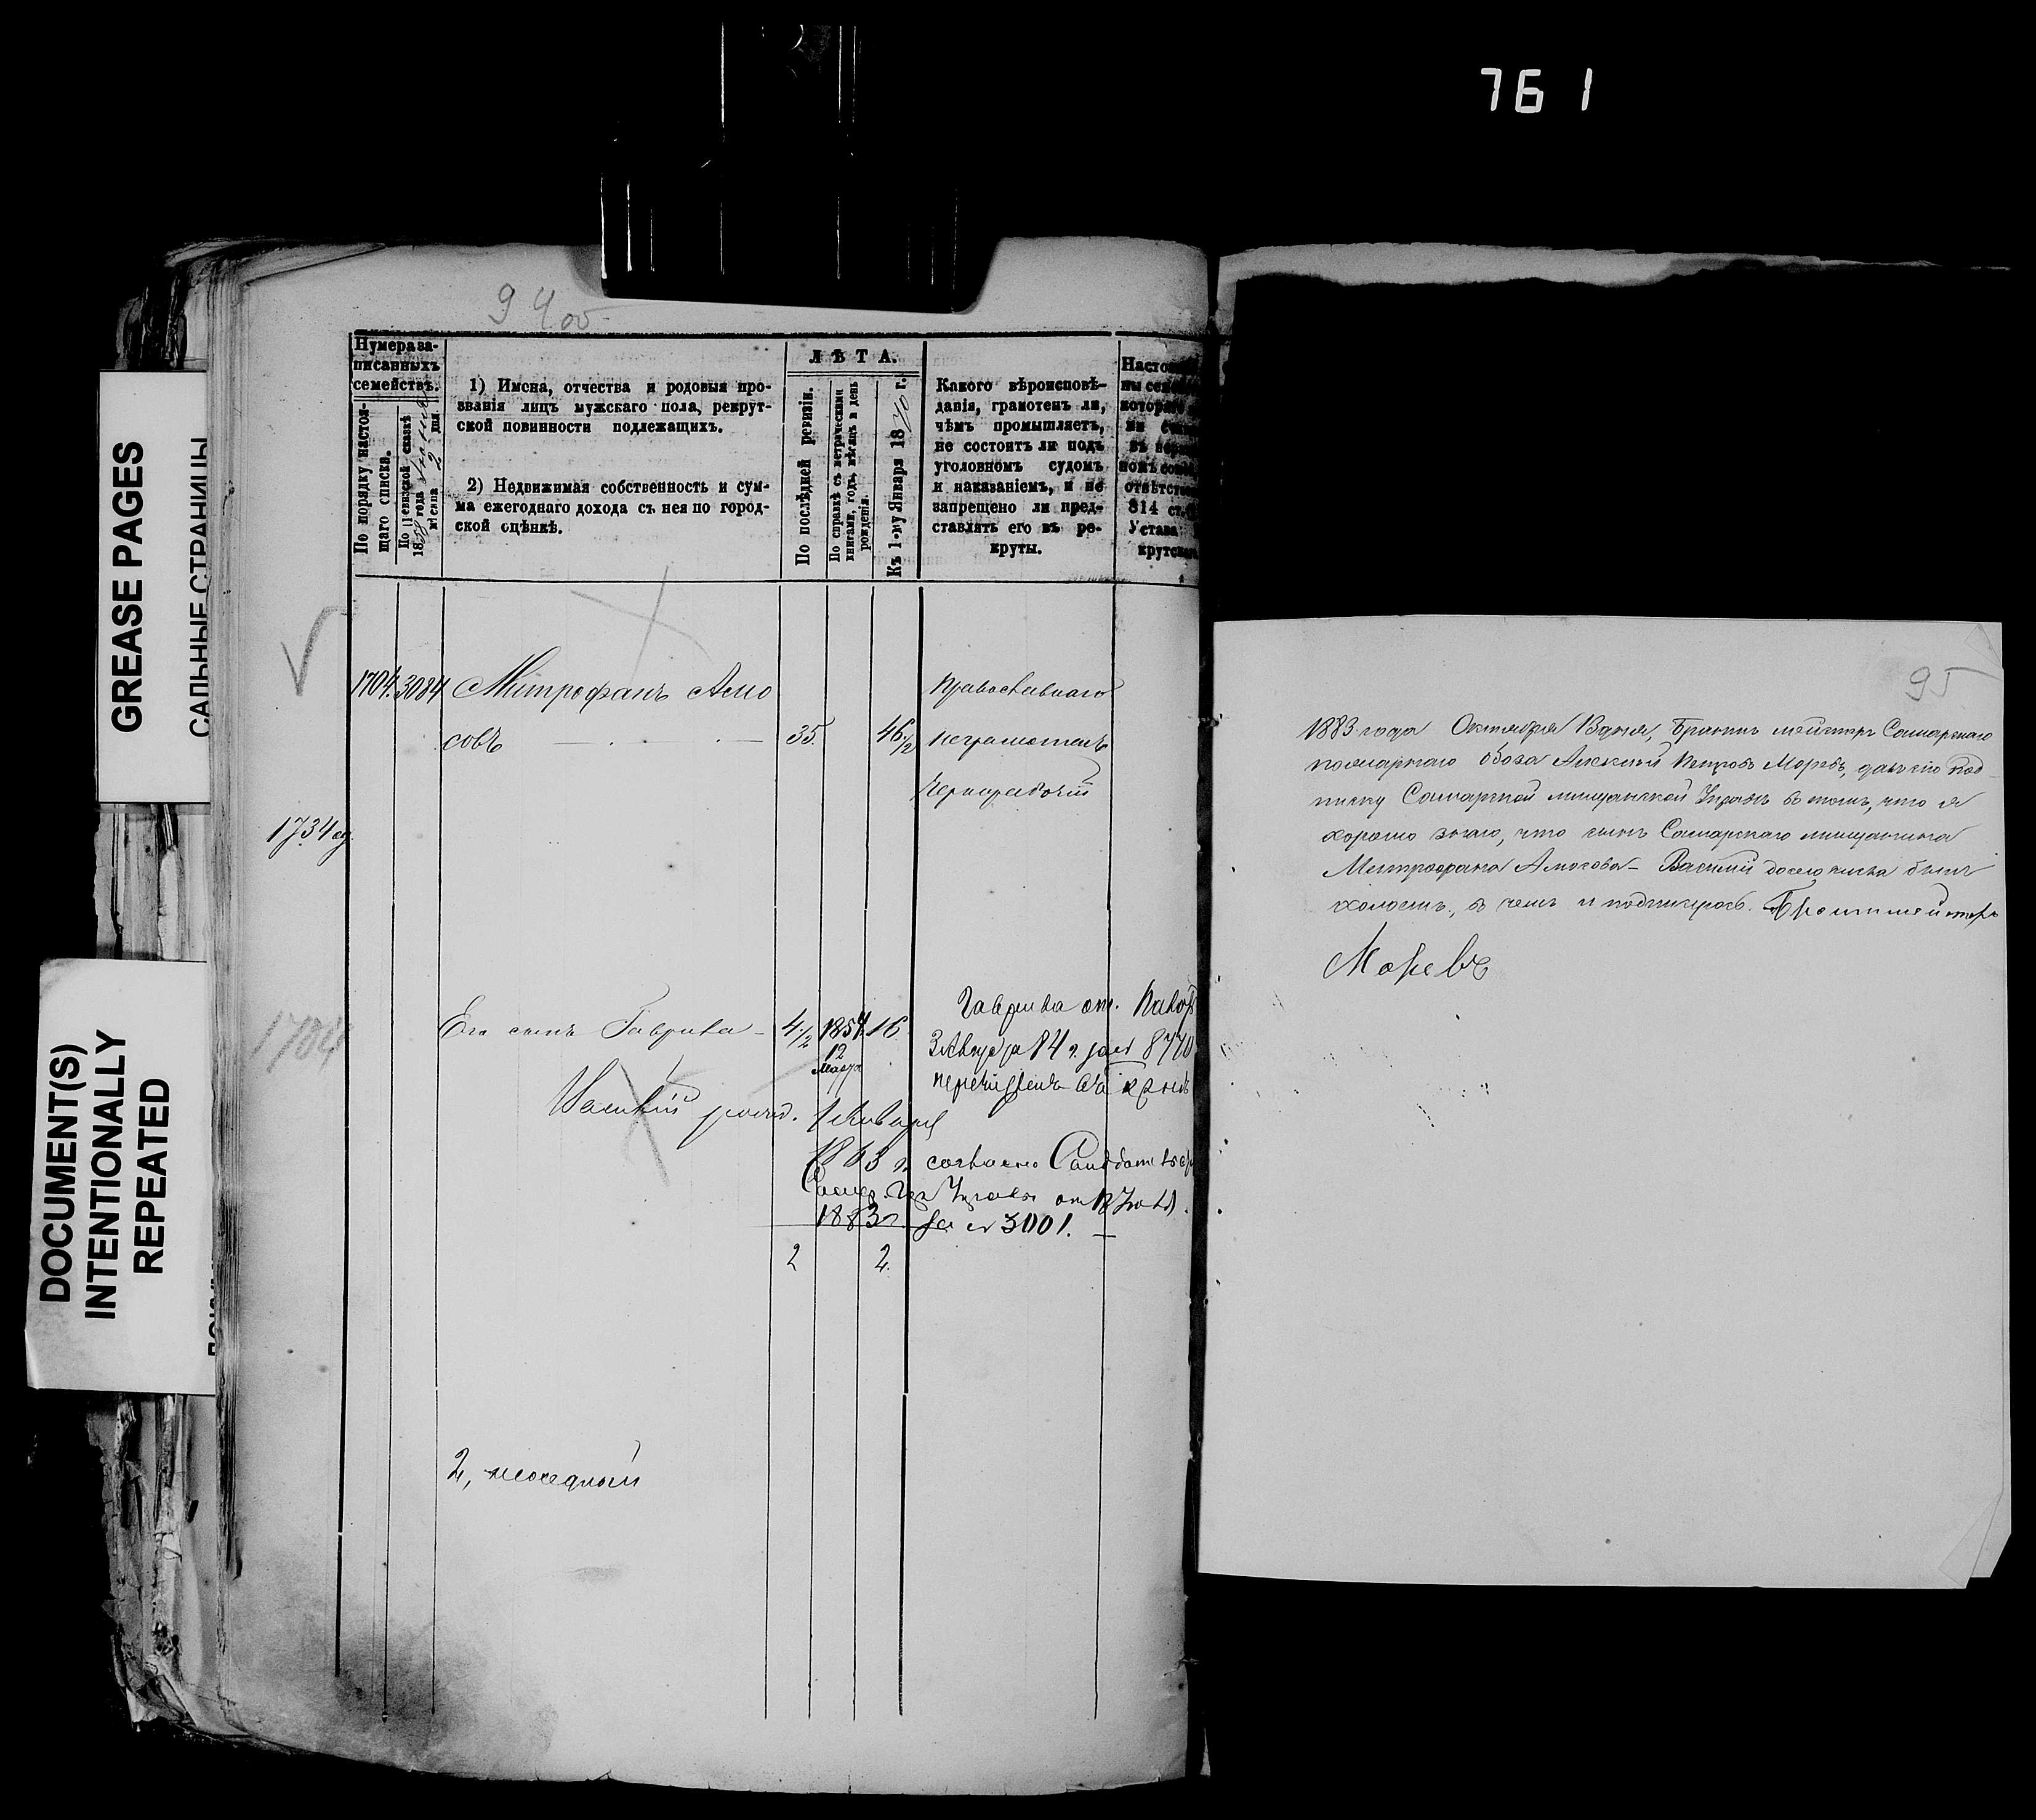 761
GREASE PAGES
САЛЬНЫЕ СТРАНИЦЫ
DOCUMENT(S)
INTENTIONALLY
REPEATED
94 об
Нумера за-
писанныхъ
семействъ.
По порядку настоя-
щаго списка.
По ревизской сказкѣ
1858 года
мѣсяца 2 дня
1) Имена, отчества и родовыя про-
званія лицъ мужскаго пола, рекрут-
ской повинности подлежащихъ.
2) Недвижимая собственность и сум-
ма ежегоднаго дохода съ нея по город-
ской оцѣнкѣ.
ЛѢТА.
По послѣдней ревизіи.
По справкѣ съ метрическими
книгами, годъ, мѣсяцъ и день
рожденія.
Къ 1-му Января 1870 г.
Какого вѣроисповѣ-
данія, грамотенъ ли,
чѣмъ промышляетъ,
не состоитъ ли подъ
уголовномъ судомъ
и наказаніемъ, и не
запрещено ли пред-
ставлять его въ ре-
круты.
814 ст.
Устава
1704. 3084 Митрофанъ Амо
совъ 35. 46 1/2
Православнаго
неграмотенъ
Чернорабочій
1734
1704
Его сынъ Гаврила 4 1/2 1854 16
12
Марта
Гаврила от.
84 г. за № 8770
перечисленъ
Василій рожд. 1 Января
1863 г. согласно
от 18
1883 г. за № 3001.
2 2.
2,
95
1883 года Октября 13 дня, Брантъ мейстръ Самарскаго
пожарнаго обоза Алексѣй Петровъ Моревъ, далъ сію под
писку Самарской мещанской Управѣ въ томъ, что я
хорошо знаю, что сынъ Самарскаго мещанина
Митрофана Амосова - Василій досего числа былъ
холостъ, въ чемъ и подпишусь. Брантмейстеръ
Моревъ